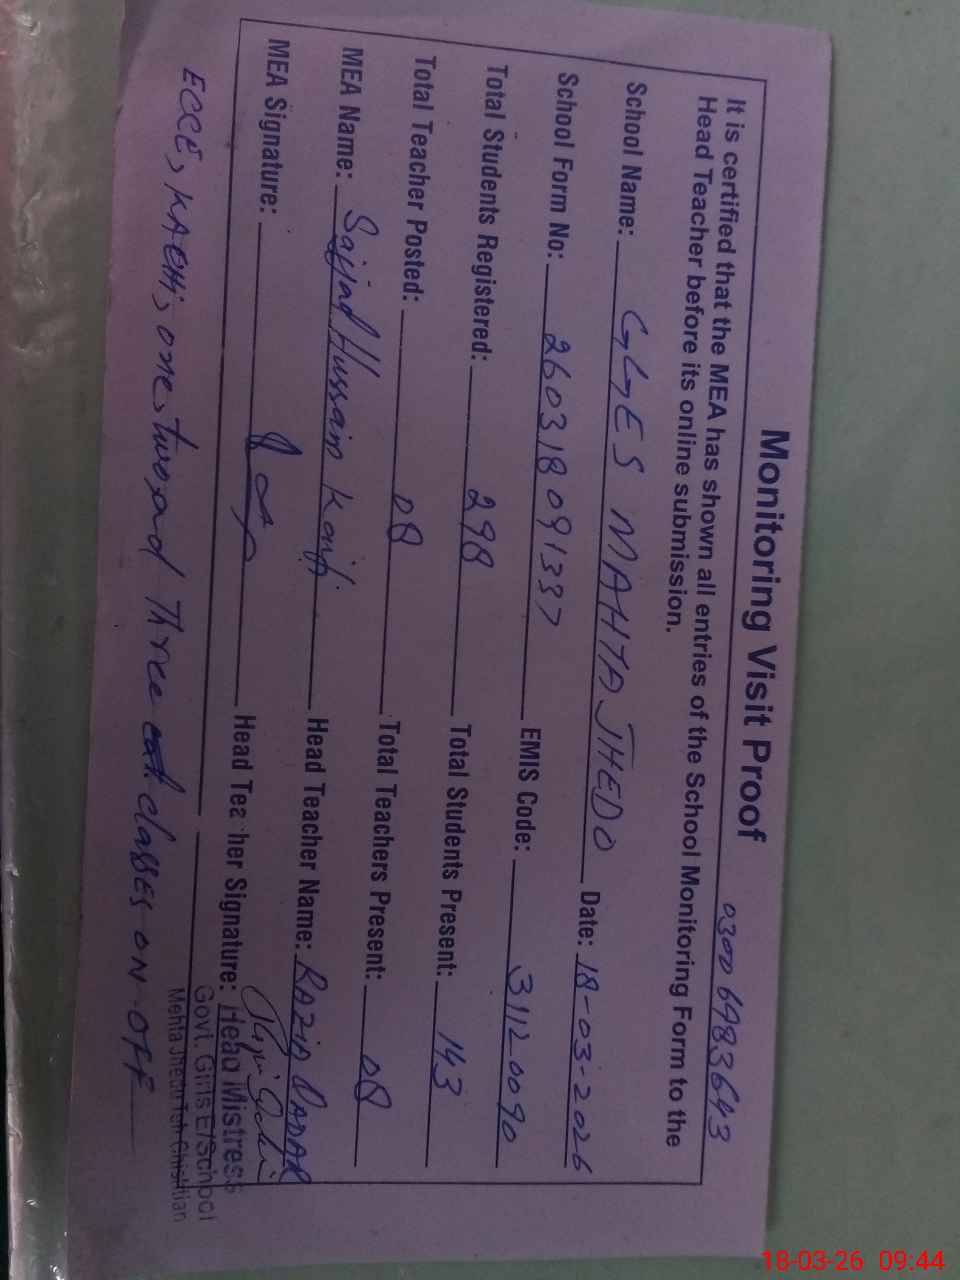 Monitoring Visit Proof
0300 6983643
It is certified that the MEA has shown all entries of the School Monitoring Form to the
Head Teacher before its online submission.
School Name: GGES MAHTA JHEDO Date: 18-03-2026
School Form No: 260318091337 EMIS Code: 31120090
Total Students Registered: 298 Total Students Present: 143
Total Teacher Posted: 08 Total Teachers Present: 08
MEA Name: Sajjad Hussain Kaifi Head Teacher Name: RAZIA
MEA Signature: Head Teacher Signature:
Head Mistress
Govt. Girls E/School
Mehta Jhedu Teh Chishtian
ECCE, KACHI, one, two and Three classes ON-OFF
18-03-26 09:44